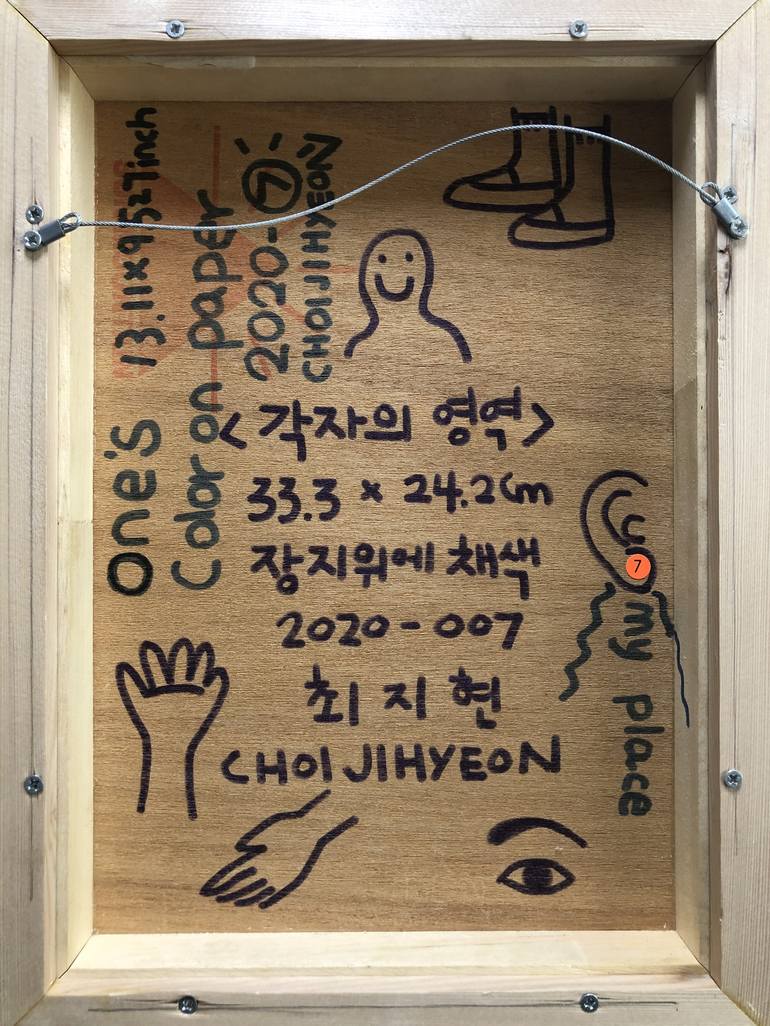 <각자의 영역>
33.3 x 24.2cm
장지위에 채색
2020-007
최지현
CHOI JIHYEON
one's
13.11x9.527inch
Color on paper
2020-⑦
CHOIJIHYEON
7
my place